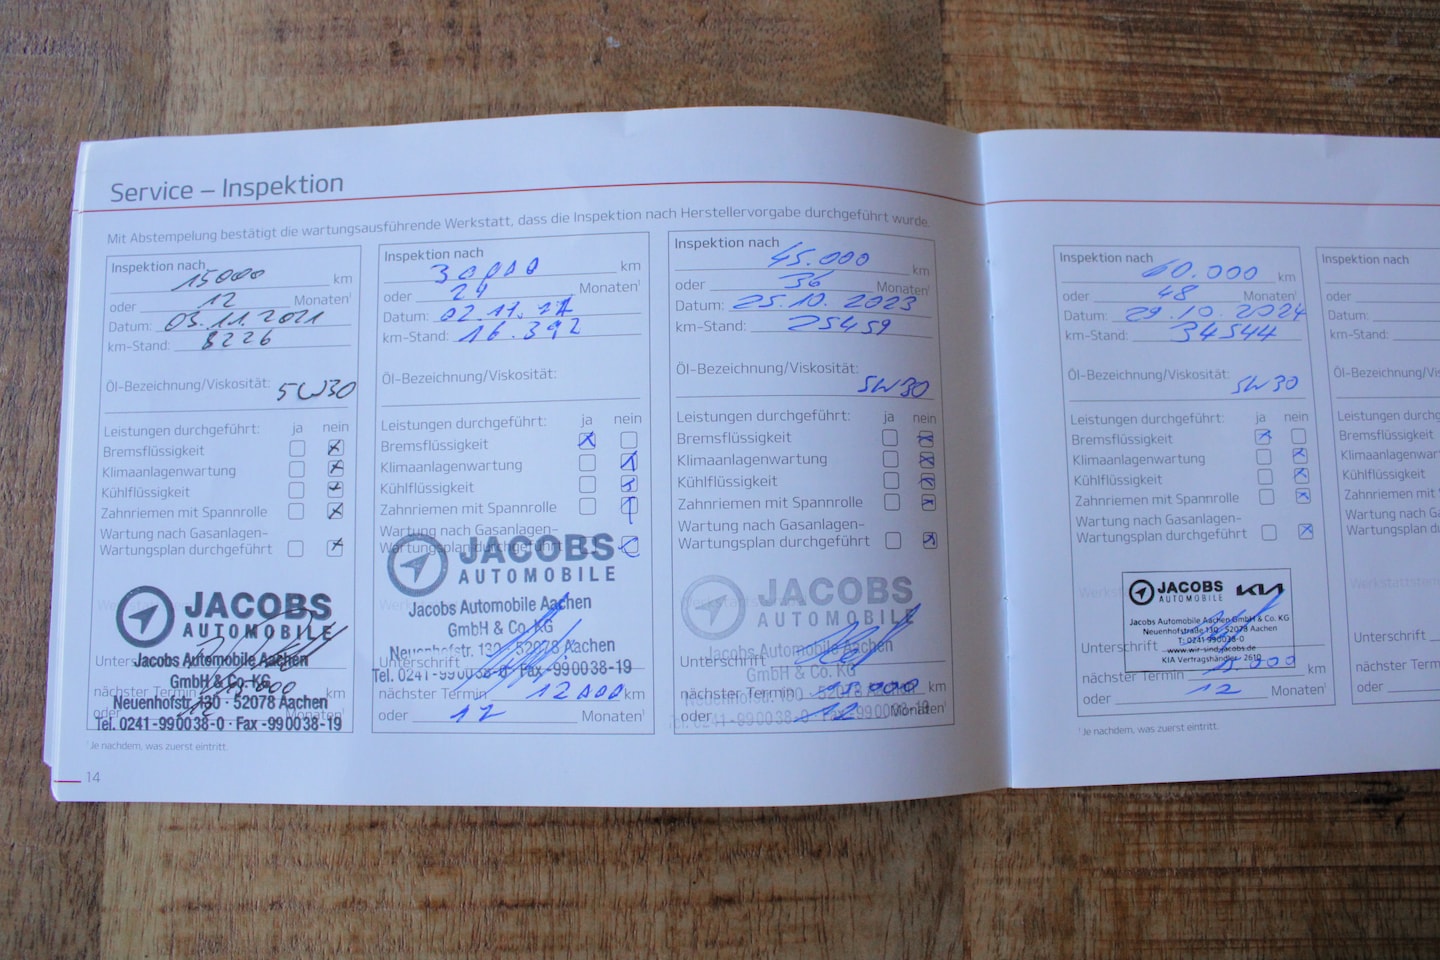 Service – Inspektion
Mit Abstempelung bestätigt die wartungsausführende Werkstatt, dass die Inspektion nach Herstellervorgabe durchgeführt wurde.
Inspektion nach 15000 km
oder 12 Monaten¹
Datum: 03.11.2021
km-Stand: 8226
Öl-Bezeichnung/Viskosität: 5W30
Leistungen durchgeführt: ja nein
Bremsflüssigkeit
Klimaanlagenwartung
Kühlflüssigkeit
Zahnriemen mit Spannrolle
Wartung nach Gasanlagen-
Wartungsplan durchgeführt
JACOBS
AUTOMOBILE
Jacobs Automobile Aachen
GmbH & Co. KG
Neuenhofstr. 130 · 52078 Aachen
Tel. 0241-990038-0 · Fax -990038-19
Unterschrift
nächster Termin km
oder Monaten¹
¹ Je nachdem, was zuerst eintritt.
14
Inspektion nach 30000 km
oder 24 Monaten¹
Datum: 02.11.
km-Stand: 16.392
Öl-Bezeichnung/Viskosität:
Leistungen durchgeführt: ja nein
Bremsflüssigkeit
Klimaanlagenwartung
Kühlflüssigkeit
Zahnriemen mit Spannrolle
Wartung nach Gasanlagen-
Wartungsplan durchgeführt
JACOBS
AUTOMOBILE
Jacobs Automobile Aachen
GmbH & Co. KG
Neuenhofstr. 130 · 52078 Aachen
Tel. 0241-990038-0 · Fax -990038-19
Unterschrift
nächster Termin km
oder 12 Monaten¹
Inspektion nach 45.000 km
oder 36 Monaten¹
Datum: 25.10.2023
km-Stand: 25459
Öl-Bezeichnung/Viskosität: 5W30
Leistungen durchgeführt: ja nein
Bremsflüssigkeit
Klimaanlagenwartung
Kühlflüssigkeit
Zahnriemen mit Spannrolle
Wartung nach Gasanlagen-
Wartungsplan durchgeführt
JACOBS
AUTOMOBILE
Jacobs Automobile Aachen
GmbH & Co. KG
52078 Aachen
Unterschrift
nächster Termin km
oder 12 Monaten¹
Inspektion nach 60.000 km
oder 48 Monaten¹
Datum: 29.10.2024
km-Stand: 34544
Öl-Bezeichnung/Viskosität: 5W30
Leistungen durchgeführt: ja nein
Bremsflüssigkeit
Klimaanlagenwartung
Kühlflüssigkeit
Zahnriemen mit Spannrolle
Wartung nach Gasanlagen-
Wartungsplan durchgeführt
JACOBS KIA
AUTOMOBILE
Jacobs Automobile Aachen GmbH & Co. KG
Neuenhofstraße 130 · 52078 Aachen
T: 0241 990038-0
www.wir-sind-jacobs.de
KIA Vertragshändler · 2610
Unterschrift
nächster Termin km
oder 12 Monaten¹
¹ Je nachdem, was zuerst eintritt.
Inspektion nach
oder
Datum:
km-Stand:
Öl-Bezeichnung/Viskosität
Leistungen durchgeführt
Bremsflüssigkeit
Klimaanlagenwartung
Kühlflüssigkeit
Zahnriemen mit
Wartung nach Gasanlagen-
Wartungsplan
Unterschrift
nächster Termin
oder